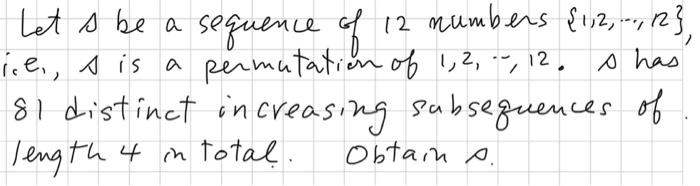 Let s be a sequence of 12 numbers {1,2,...,12},
i.e., s is a permutation of 1,2,...,12. s has
81 distinct increasing subsequences of
length 4 in total. Obtain s.